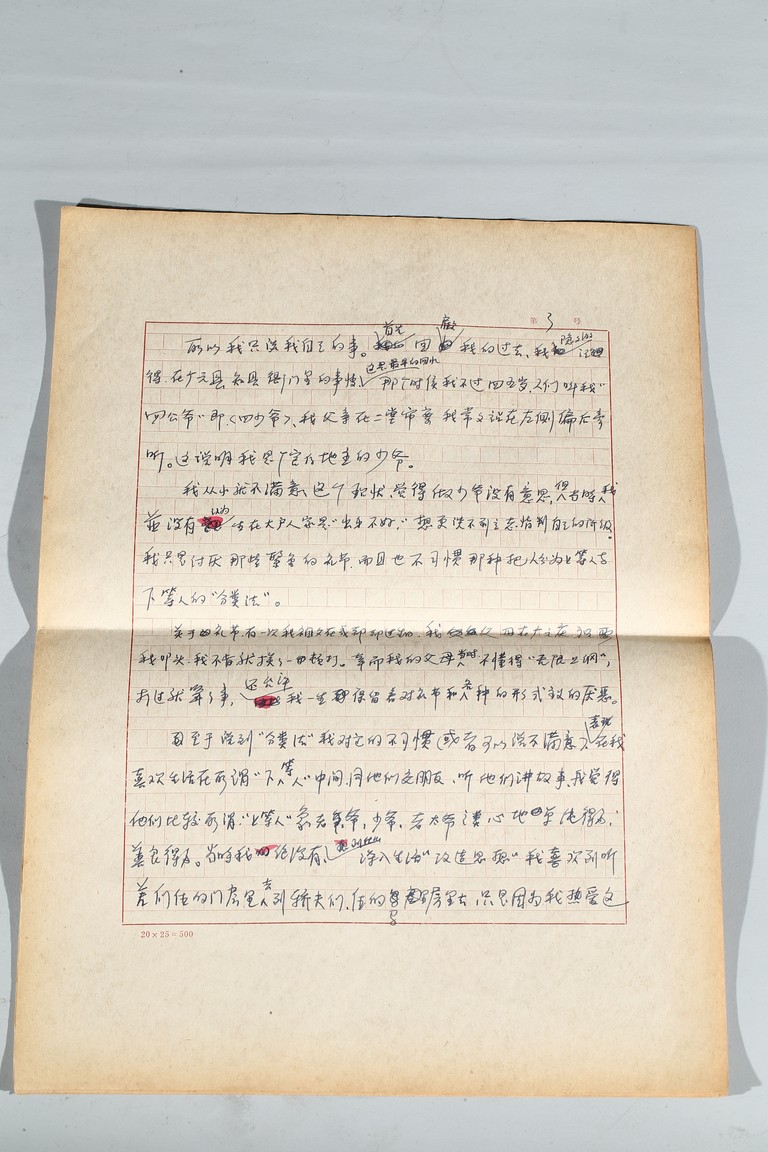 第 3 号
所以我只谈我自己的事。首先回顾我的过去,我隐约记
得,在广元县知县衙门里的事情,这是最早的回忆 那个时候我不过四五岁,人们叫我“
四公爷”即(四少爷),我父亲在二堂审案我常常站在左侧偏后旁
听。这说明我是个官僚地主的少爷。
我从小就不满意这个现状,觉得做少爷没有意思,但当时我
并没有认为生在大户人家是“出身不好”,
我只是讨厌那些繁多的礼节,而且也不习惯那种把人分为上等人与
下等人的“分类法”。
关于礼节有一次我祖父在成都
我叩头,我不肯就挨了一回顿打。幸而我的父母当时不懂得“无限上纲”,
打过就算了事,我一生保留着对礼节和各种的形式主义的厌恶。
至于谈到“分类法”我对它的不习惯(或者可以说不满意)表现在我
喜欢生活在所谓“下等人”中间,同他们交朋友,听他们讲故事,我觉得
他们比较所谓“上等人”象老爷,少爷,老太爷 心地 单纯得多,
善良得多。当时我绝没有想到什么深入生活“改造思想”我喜欢到听
差们住的门房里去,到轿夫们住的 房里去,只是因为我热爱这
20×25=500